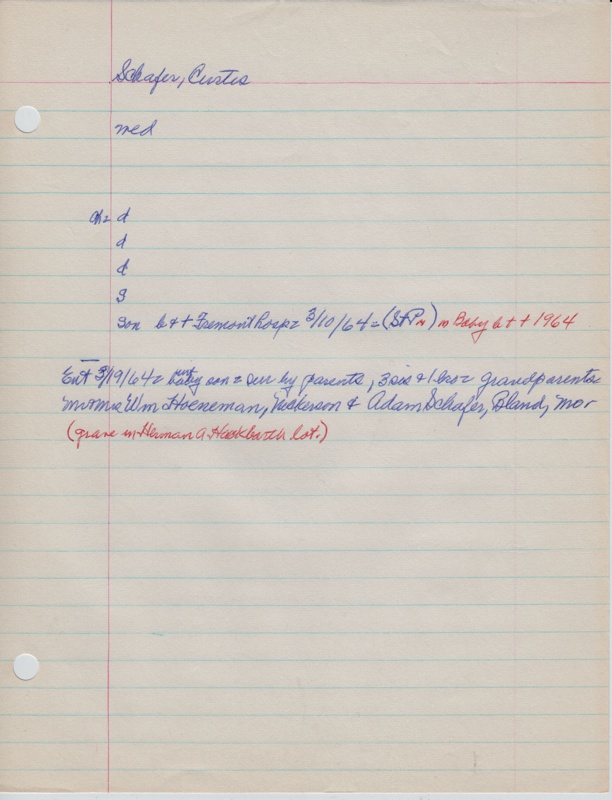 Schafer, Curtis
med
ch= d
d
d
S
son b & + Fremont hosp= 3/10/64= (St P ) m Baby b + + 1964
Ent 3/19/64= inf baby son= sur by parents, 3 sis & 1 bro= grandparents=
Mr & Mrs Wm Hoeneman, Nickerson & Adam Schafer, Bland, Mo
(grave in Herman A Hackbarth lot.)